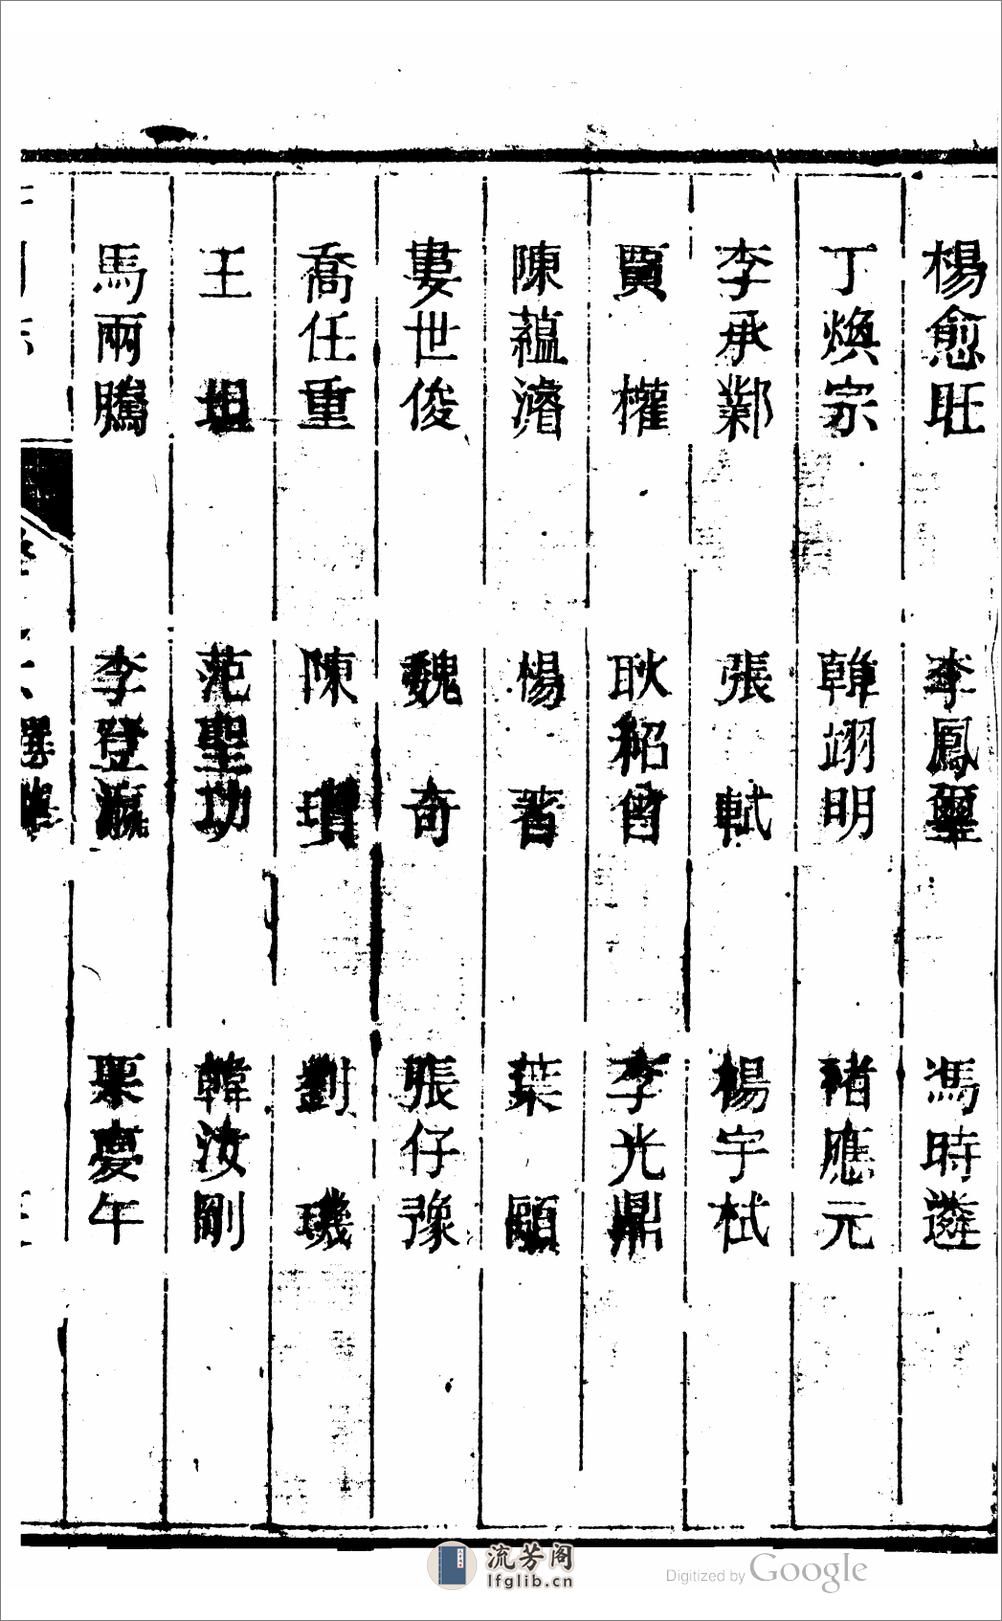 楊愈旺 李鳳墀 馮時遴
丁煥宗 韓翊明 褚應元
李承鄴 張軾 楊宇栻
賈權 耿紹曾 李光鼎
陳蘊濬 楊著 葉頤
婁世俊 魏奇 張仔豫
喬任重 陳瓚 劉璣
王坦 范聖功 韓汝剛
馬兩騰 李登瀛 栗慶午
流芳阁
lfglib.cn
Digitized by Google